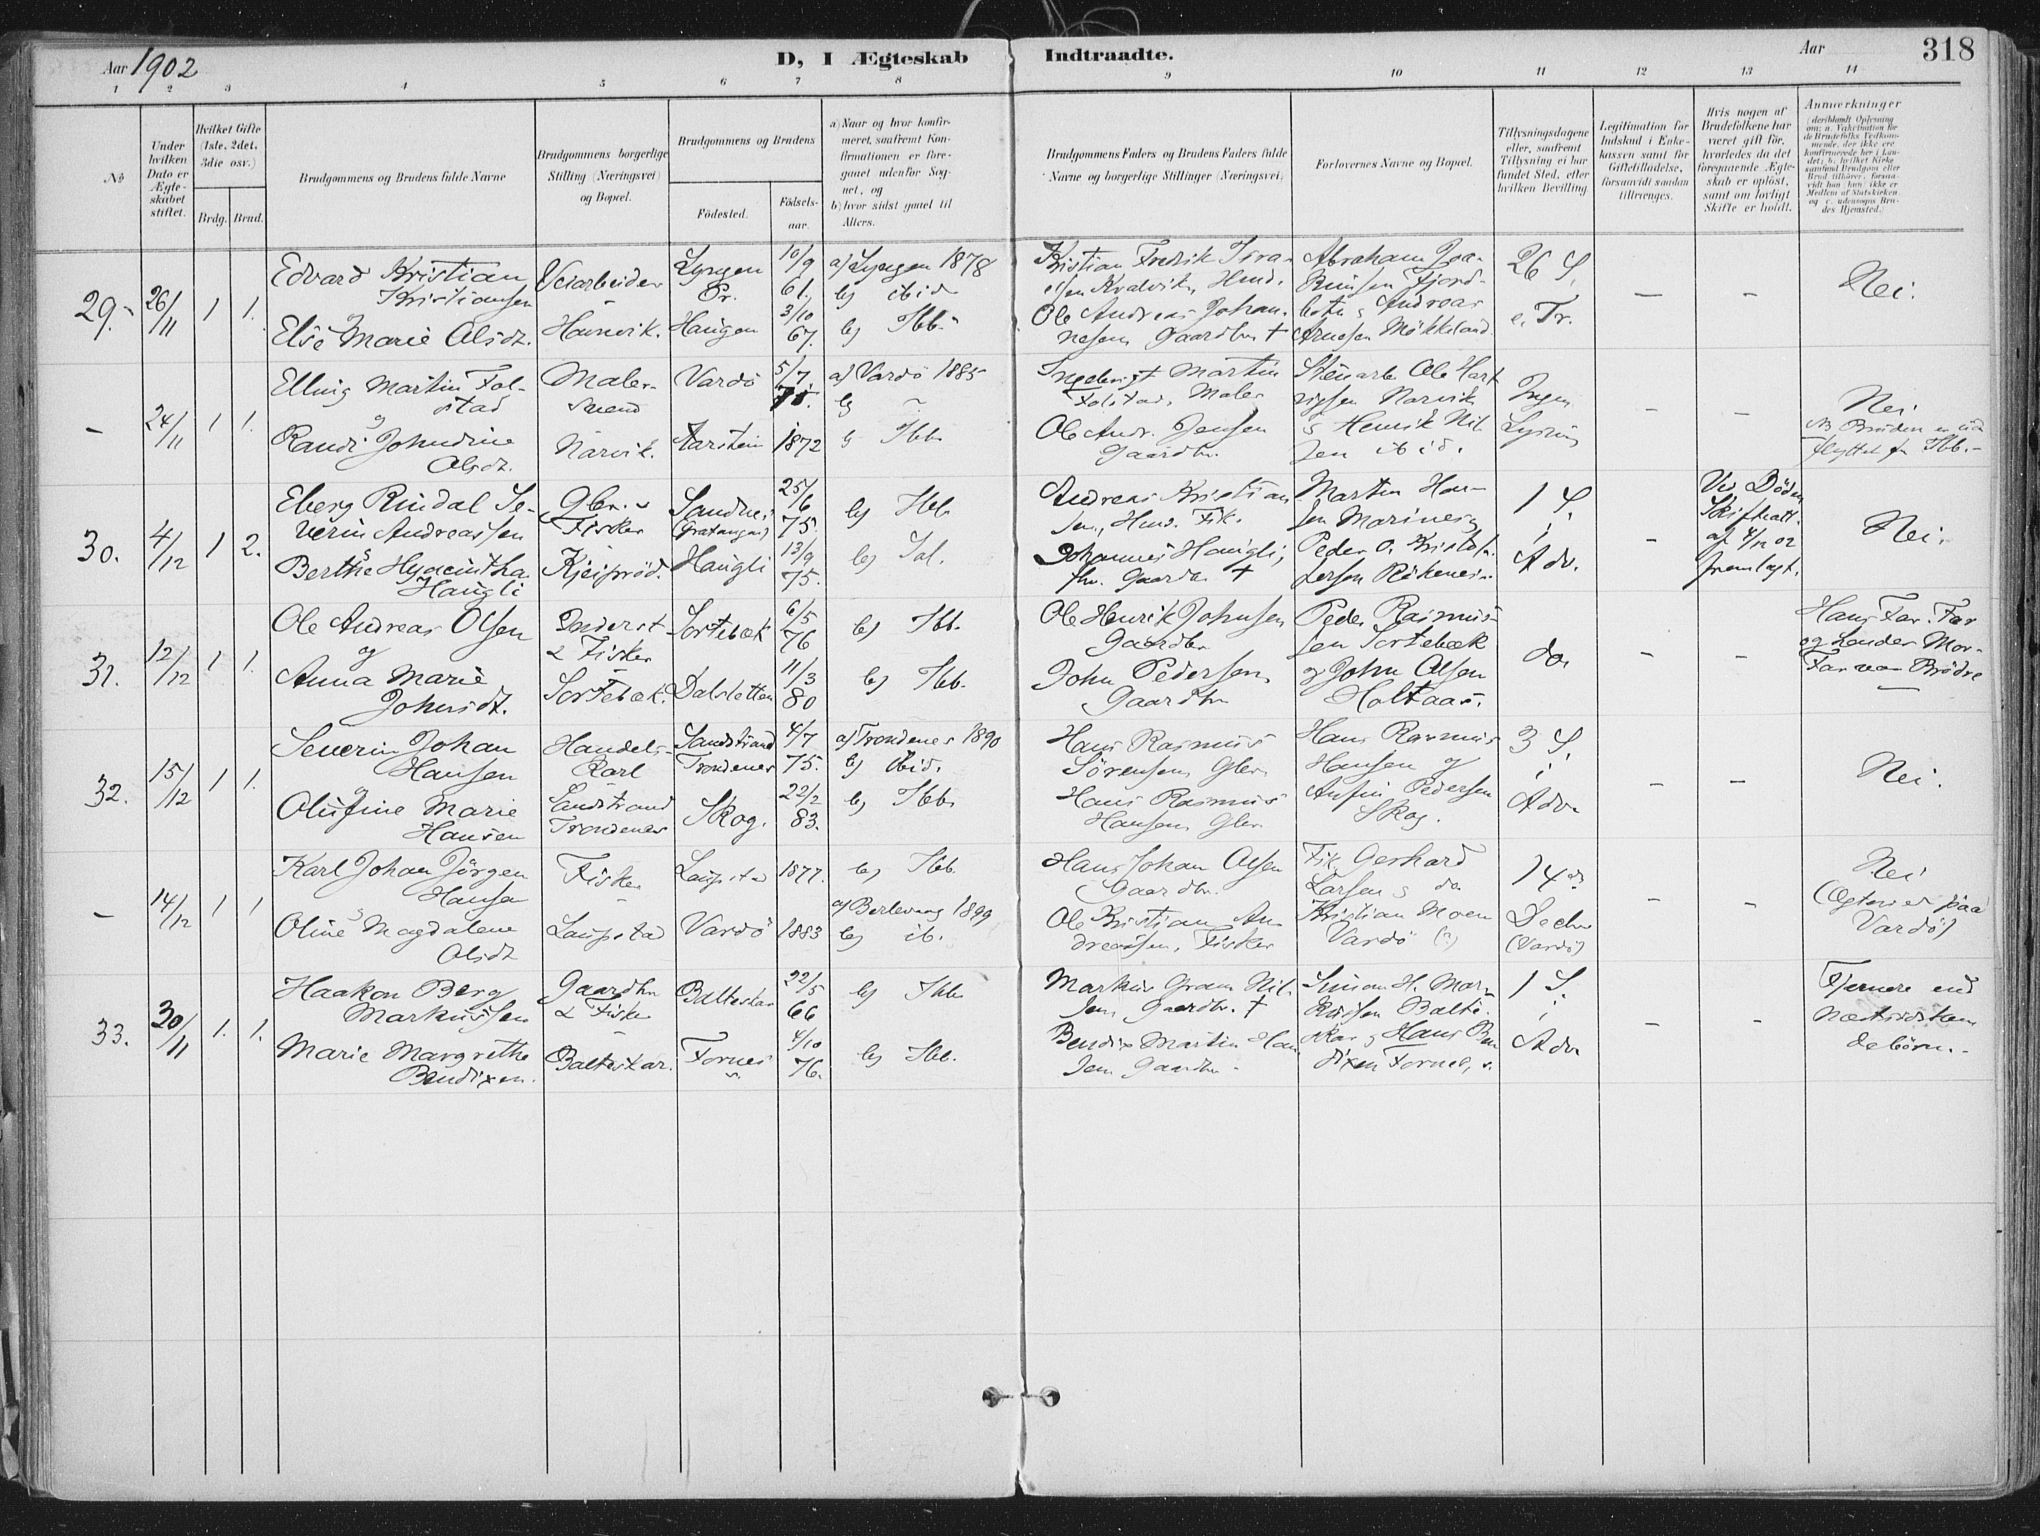 Aar 1902
D, I Ægteskab Indtraadte.
Aar
318
1 2 3 4 5 6 7 8 9 10 11 12 13 14
No
Under hvilken Dato er Ægteskabet stiftet.
Hvilket Gifte (1ste, 2det, 3die osv.)
Brdg. Brud.
Brudgommens og Brudens fulde Navne
Brudgommens borgerlige Stilling (Næringsvei) og Bopæl.
Brudgommens og Brudens
Fødested.
Fødselsaar.
a) Naar og hvor konfirmeret, saafremt Konfirmationen er foregaaet udenfor Sognet, og
b) hvor sidst gaaet til Alters.
Brudgommens Faders og Brudens Faders fulde Navne og borgerlige Stillinger (Næringsvei)
Forlovernes Navne og Bopæl.
Tillysningsdagene eller, saafremt Tillysning ei har fundet Sted, efter hvilken Bevilling.
Legitimation for Indskud i Enkekassen samt for Giftetilladelse, forsaavidt saadan tiltrænges.
Hvis nogen af Brudefolkene har været gift før, hvorledes da det foregaaende Ægteskab er opløst, samt om lovligt Skifte er holdt.
Anmerkninger
29. 26/11 1 1.
Edvard Kristian
Kristiansen
Else Marie Olsdt.
Veiarbeider
Havnvik.
Lyngen Pr.
Haugen
10/9 61.
3/10 67.
a) Lyngen 1878
b) ibid
b) Ibb.
Kristian Fredrik Isra-
Ole Andreas Johan-
nesen Gaardbr. +
Abraham Joa-
kimsen Fjord-
botn & Andreas
Arnesen Møkkeland
26 S.
e. Tr.
—
—
Nei.
— 24/11 1 1.
Elling Martin Fol-
stad
&
Randi Johndine
Olsdt.
Maler-
svend
Narvik.
Vardö
Aarstein
5/7 75.
1872
a) Vardö 1885
b) —
b) Ibb
Ingebrigt Martin
Folstad, Maler
Ole Andr. Jensen
Gaardbr.
Stenarb. Ole Hart
vigsen Narvik
& Henrik Nil-
sen ibid.
Ingen
Lysning
—
—
Nei
NB Bruden er ud
flyttet fr Ibb. -
30. 4/12 1 2.
Eberg Rindal Se-
verin Andreassen
&
Berthe Hyacintha
Haugli
Gbr. &
Fisker
Kjeiprød.
Sandnes
(Gratangen)
Haugli
25/6 75
13/9 75.
b) Ibb
b) Sal.
Andreas Kristian
sen, Fik.
Johannes Haugli,
Gaardbr +
Martin Han-
sen Marines &
Peder O. Kristof-
fersen Røkenes.
1 S.
i
Adv.
—
Ved Døden
Skifteatt.
af 4/12 02
fremlagt.
Nei.
31. 12/12 1 1.
Ole Andreas Olsen
og
Anna Marie
Johnsdt.
Inderst
& Fisker
Sortebæk.
Sortebæk
Dalsletten
6/5 76
11/3 80
b) Ibb.
b) Ibb.
Ole Henrik Johnsen
Gaardbr
John Pedersen,
Gaardbr
Peder Rasmus-
sen Sortebæk
og John Olsen
Holtaas.
do
—
—
Hans Far. Far
og hendes Mor-
Far var Brödre
—
32. 15/12 1 1.
Severin Johan
Hansen
&
Olufine Marie
Hansen
Handels-
Karl
Sandstrand
Trondenes
Sandstrand
Trondenes
Skog.
4/7 75.
22/2 83.
a) Trondenes 1890
b) ibid.
b) Ibb
Hans Rasmus
Sörensen, Gbr.
Hans Rasmus
Hansen, Gbr
Hans Rasmus
Hansen og
Anfin Pedersen
Skog.
3 S.
i
Adv
—
—
Nei.
— 14/12 1 1
Karl Johan Jörgen
Hansen
&
Oline Magdalene
Olsdt
Fisker
—
Laupstad
Laupstad
Vardö
1877.
1883
b) Ibb.
a) Berlevaag 1899
b) ib.
Hans Johan Olsen
Gaardbr.
Ole Kristian An-
dreassen, Fisker
Fik Gerhard
Larsen & do
Kristian Moen
Vardö (?)
14de
Decbr
(Vardö)
—
—
Nei
(Ægteviet paa
Vardö)
33. 30/11 1. 1.
Haakon Berg
Markussen
Marie Margrethe
Bendixen.
Gaardbr
& Fisker
Baltestar.
Baltestar
Fornes
s.
22/5 66
4/10 76.
b) Ibb
b) Ibb.
Markus Gram Nil-
sen Gaardbr. +
Bendix Martin Han
sen Gaardbr -
Simon H. Mar-
kussen Balte-
skar & Hans Ben
dixen Fornes, s.
1 S.
i
Adv
—
—
Fjernere end
Næstsødsken
debörn. -